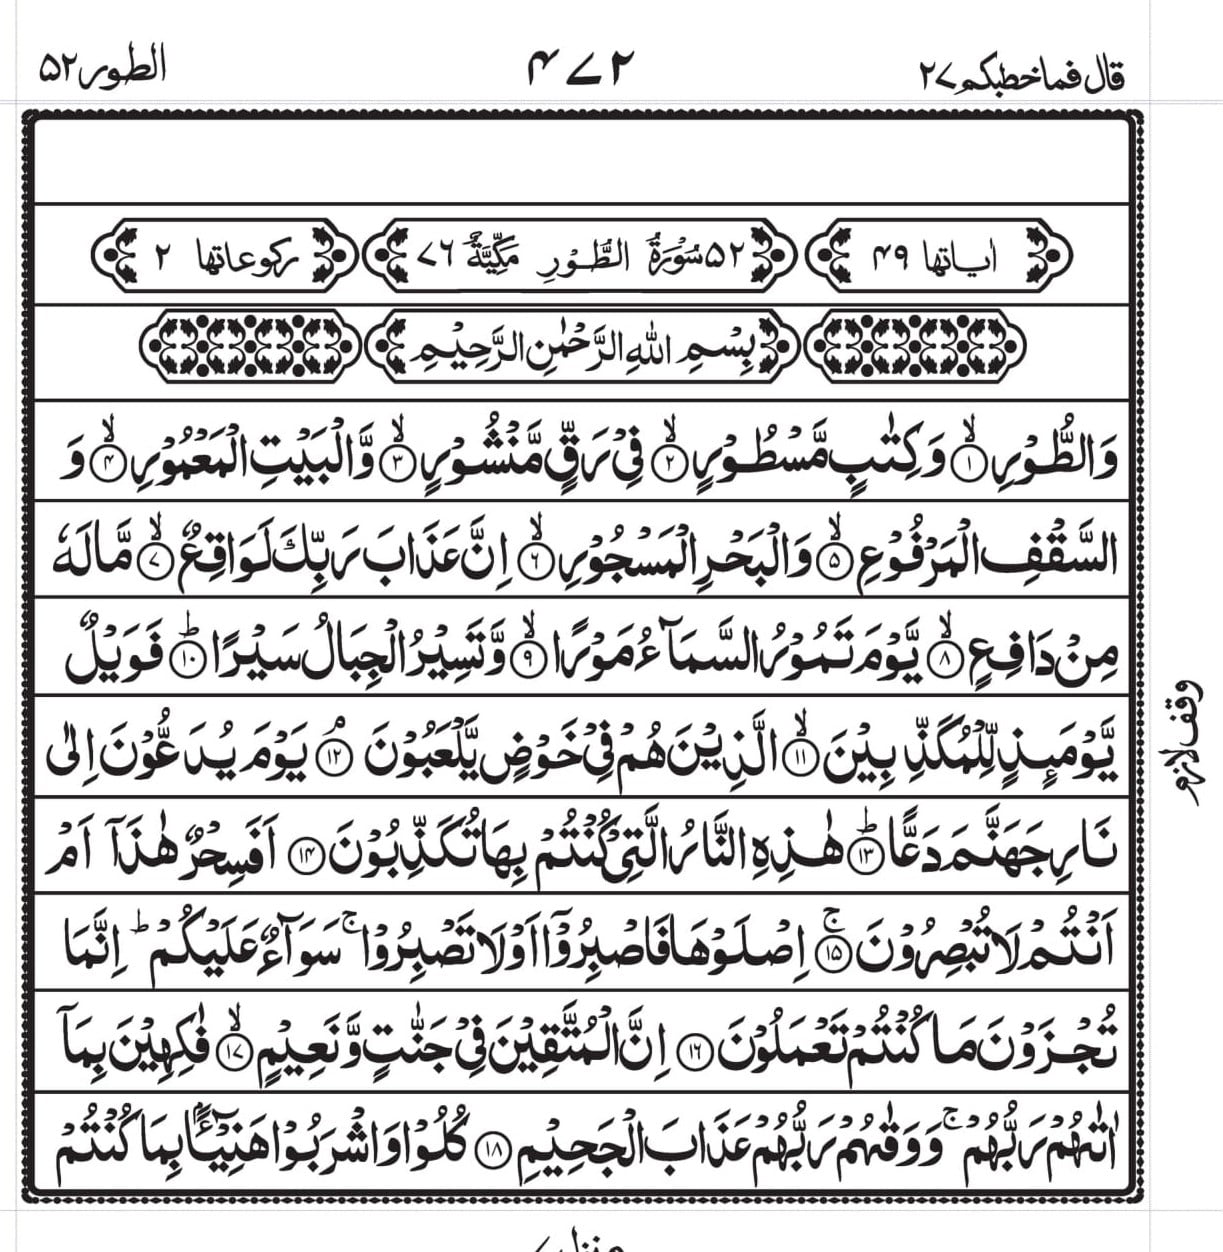 قال فماخطبکم ۲۷ ۴۷۲ الطور ۵۲
اٰیاتها ۴۹ ۵۲ سُوْرَةُ الطُّوْرِ مَکِّیَّةٌ ۷۶ رکوعاتها ۲
بِسْمِ اللهِ الرَّحْمٰنِ الرَّحِیْمِ
وَالطُّوْرِ ۙ﴿۱﴾ وَكِتٰبٍ مَّسْطُوْرٍ ۙ﴿۲﴾ فِیْ رَقٍّ مَّنْشُوْرٍ ۙ﴿۳﴾ وَّالْبَیْتِ الْمَعْمُوْرِ ۙ﴿۴﴾ وَ
السَّقْفِ الْمَرْفُوْعِ ۙ﴿۵﴾ وَالْبَحْرِ الْمَسْجُوْرِ ۙ﴿۶﴾ اِنَّ عَذَابَ رَبِّكَ لَوَاقِعٌ ۙ﴿۷﴾ مَّا لَهٗ
مِنْ دَافِعٍ ۙ﴿۸﴾ یَّوْمَ تَمُوْرُ السَّمَآءُ مَوْرًا ۙ﴿۹﴾ وَّتَسِیْرُ الْجِبَالُ سَیْرًا ؕ﴿۱۰﴾ فَوَیْلٌ
یَّوْمَىِٕذٍ لِّلْمُكَذِّبِیْنَ ۙ﴿۱۱﴾ الَّذِیْنَ هُمْ فِیْ خَوْضٍ یَّلْعَبُوْنَ ۘ﴿۱۲﴾ یَوْمَ یُدَعُّوْنَ اِلٰی
نَارِ جَهَنَّمَ دَعًّا ؕ﴿۱۳﴾ هٰذِهِ النَّارُ الَّتِیْ كُنْتُمْ بِهَا تُكَذِّبُوْنَ ﴿۱۴﴾ اَفَسِحْرٌ هٰذَاۤ اَمْ
اَنْتُمْ لَا تُبْصِرُوْنَ ۚ﴿۱۵﴾ اِصْلَوْهَا فَاصْبِرُوْۤا اَوْ لَا تَصْبِرُوْا ۚ سَوَآءٌ عَلَیْكُمْ ؕ اِنَّمَا
تُجْزَوْنَ مَا كُنْتُمْ تَعْمَلُوْنَ ﴿۱۶﴾ اِنَّ الْمُتَّقِیْنَ فِیْ جَنّٰتٍ وَّنَعِیْمٍ ۙ﴿۱۷﴾ فٰكِهِیْنَ بِمَاۤ
اٰتٰهُمْ رَبُّهُمْ ۚ وَوَقٰهُمْ رَبُّهُمْ عَذَابَ الْجَحِیْمِ ﴿۱۸﴾ كُلُوْا وَاشْرَبُوْا هَنِیْٓـًٔۢا بِمَا كُنْتُمْ
وقف لازم
منزل ۷